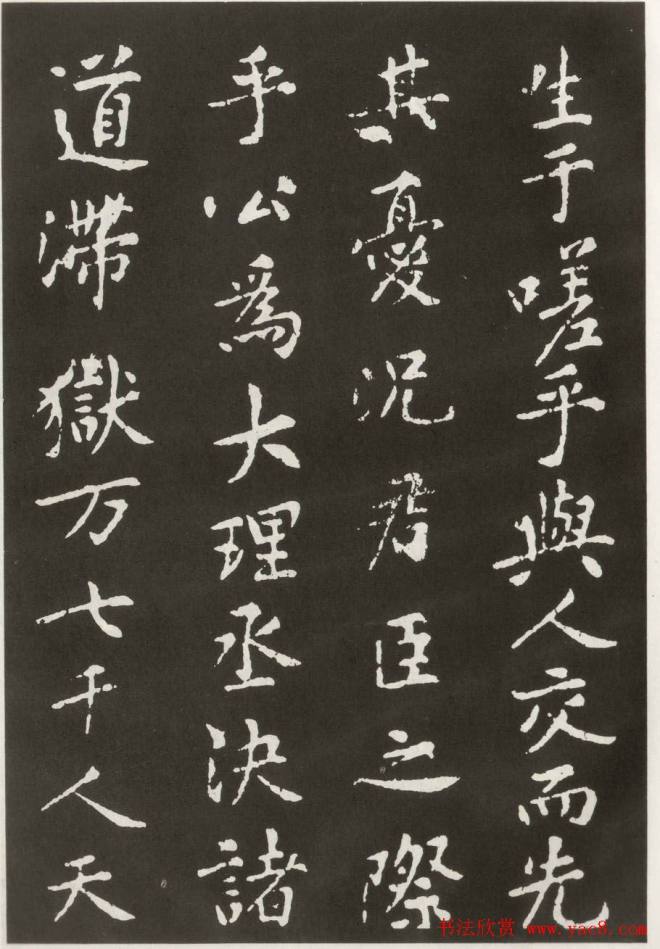 生乎嗟乎與人交而先
其憂况君臣之際
乎公爲大理丞決諸
道滯獄万七千人天
书法欣赏 www.yac8.com